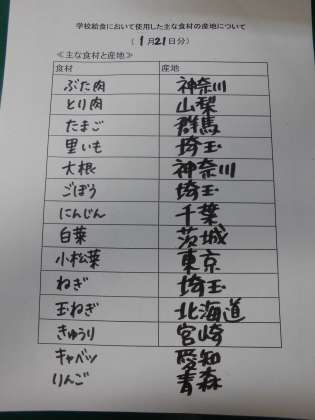 学校給食において使用した主な食材の産地について
( 1月21日分)
≪主な食材と産地≫
食材 産地
ぶた肉 神奈川
とり肉 山梨
たまご 群馬
里いも 埼玉
大根 神奈川
ごぼう 埼玉
にんじん 千葉
白菜 茨城
小松菜 東京
ねぎ 埼玉
玉ねぎ 北海道
きゅうり 宮崎
キャベツ 愛知
りんご 青森